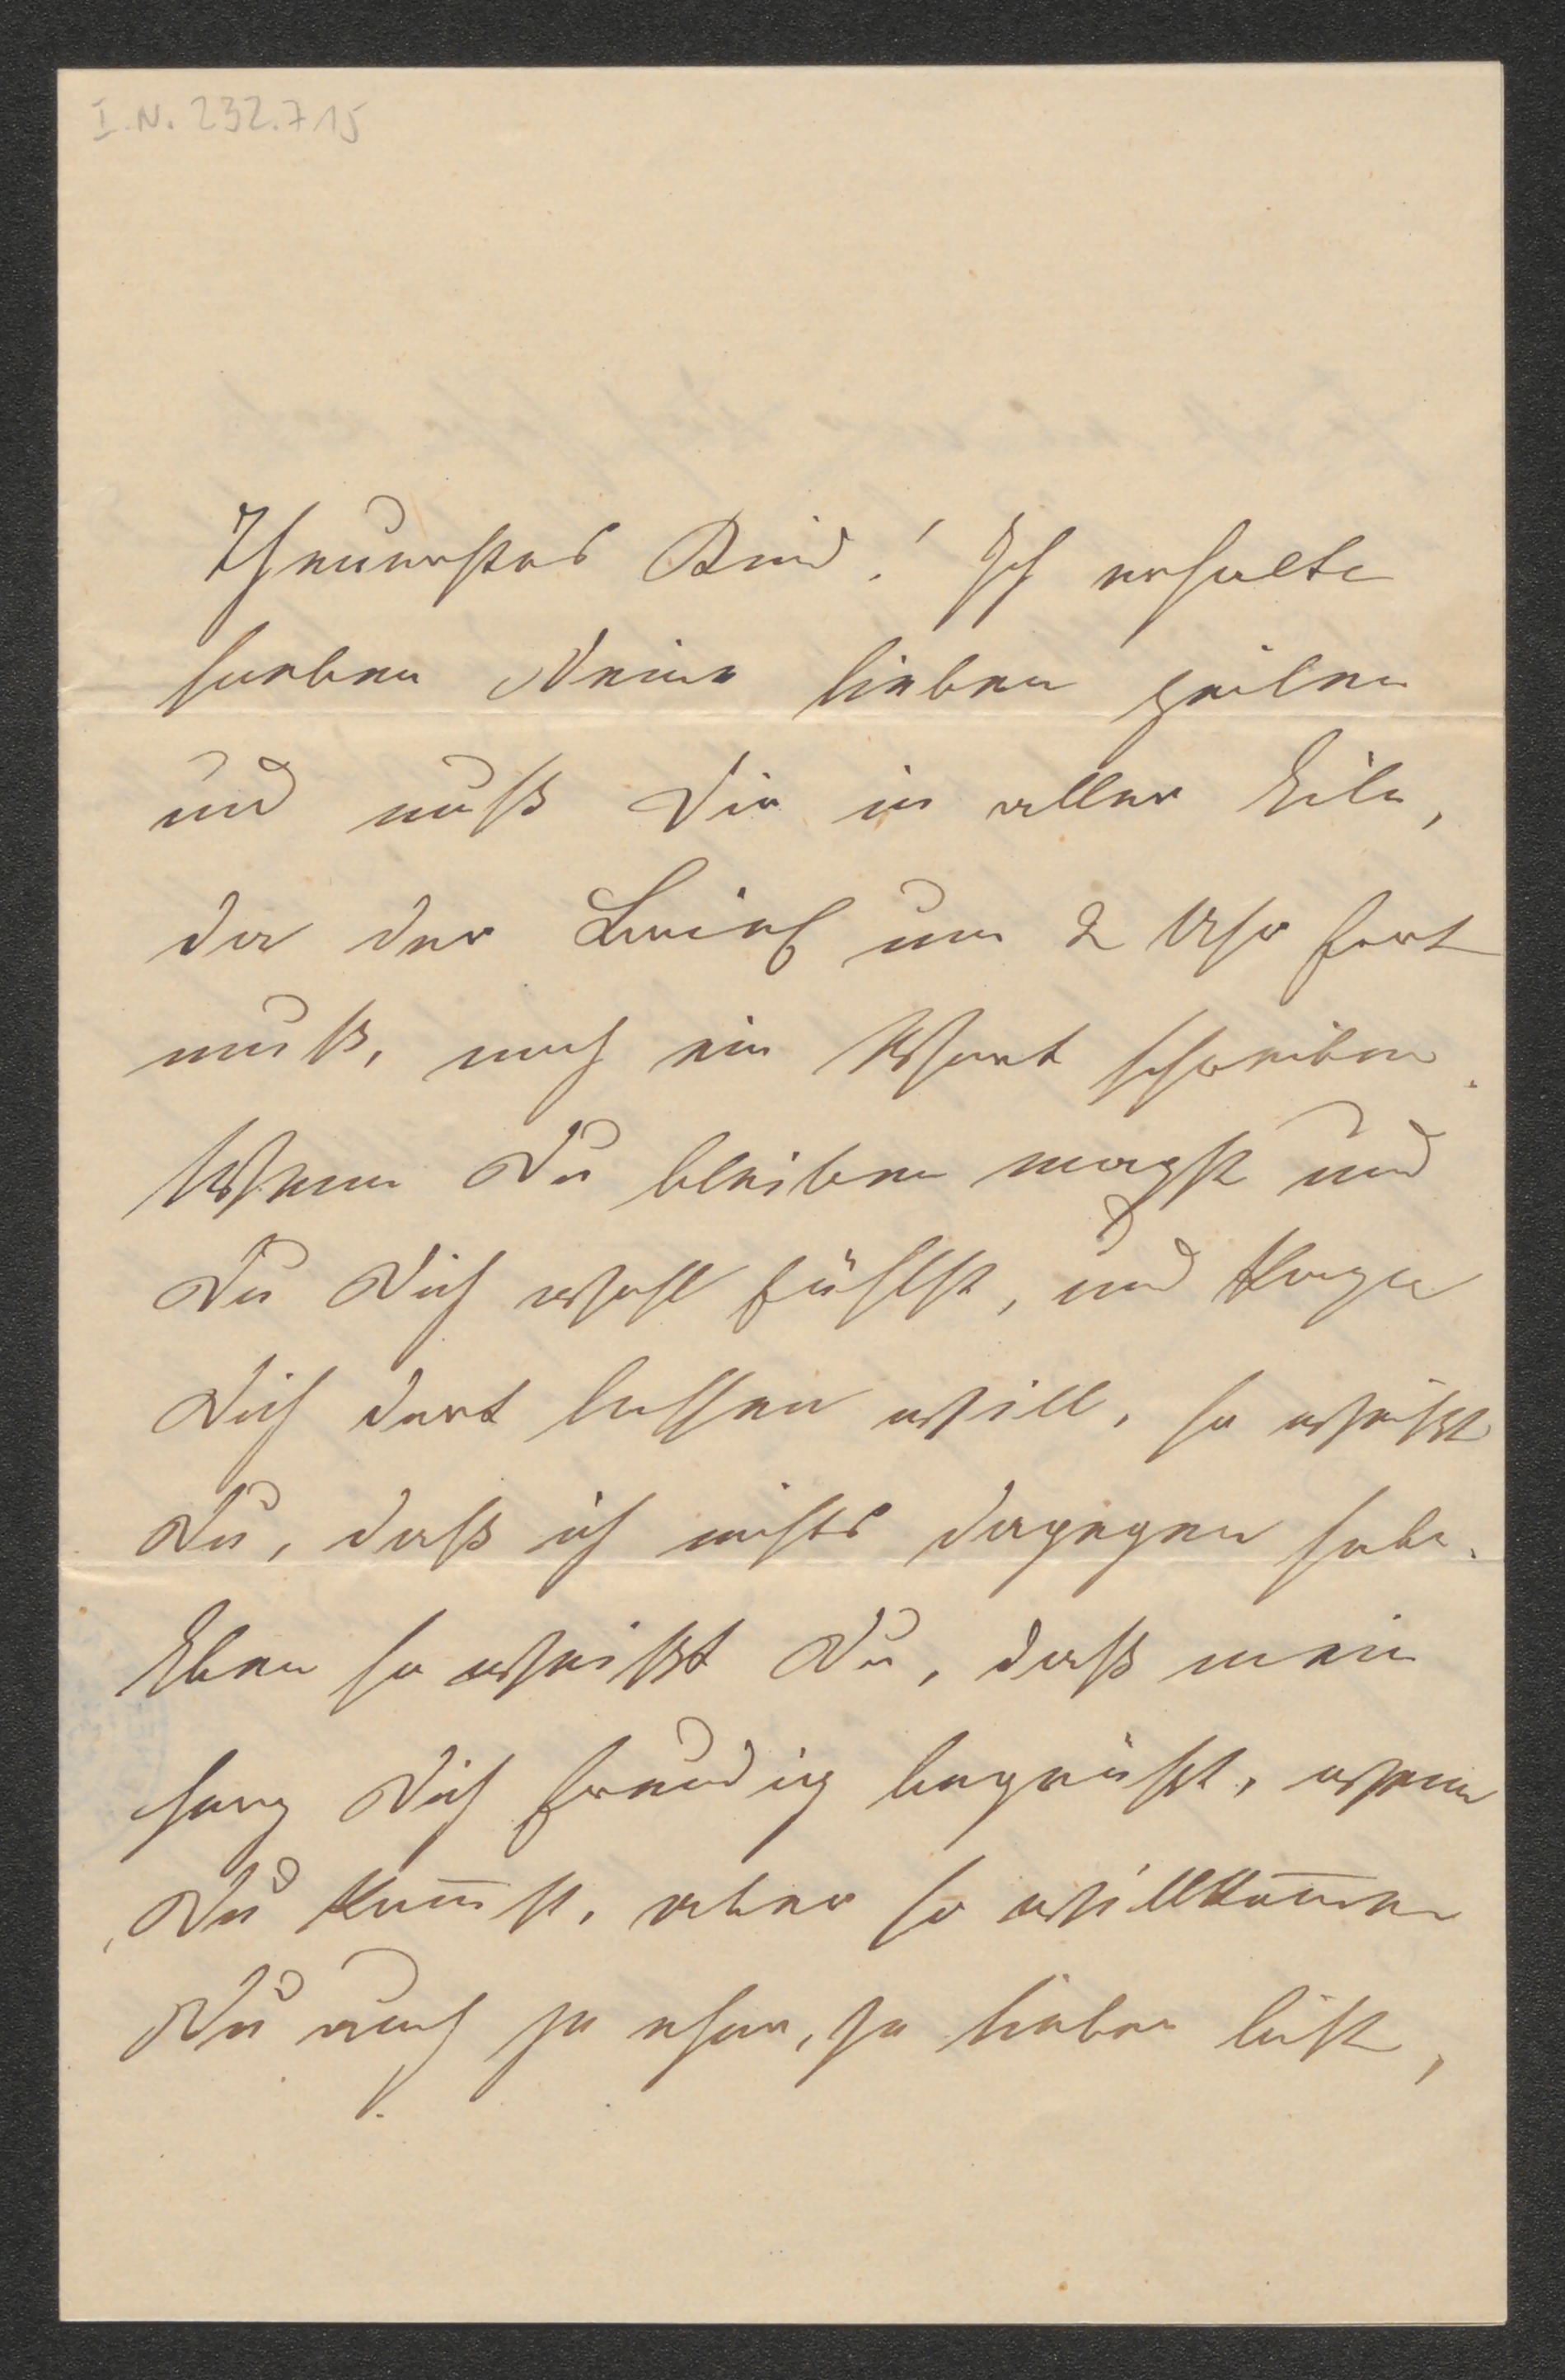 I.N. 232.715
Theuerstes Kind! Ich erhalte
soeben Deine lieben Zeilen
und muß Dir in aller Eile,
da der Brief um 2 Uhr fort
muß, noch ein Wort schreiben.
Wenn Du bleiben magst und
Du Dich wohl fühlst, und
Dich dort lassen will, so weißt
Du, daß ich nichts dagegen habe.
Eben so weißt Du, daß mein
Herz Dich freudig begrüßt, wenn
Du kom̅st, aber so willkom̅en
Du auch je eher, je lieber bist,